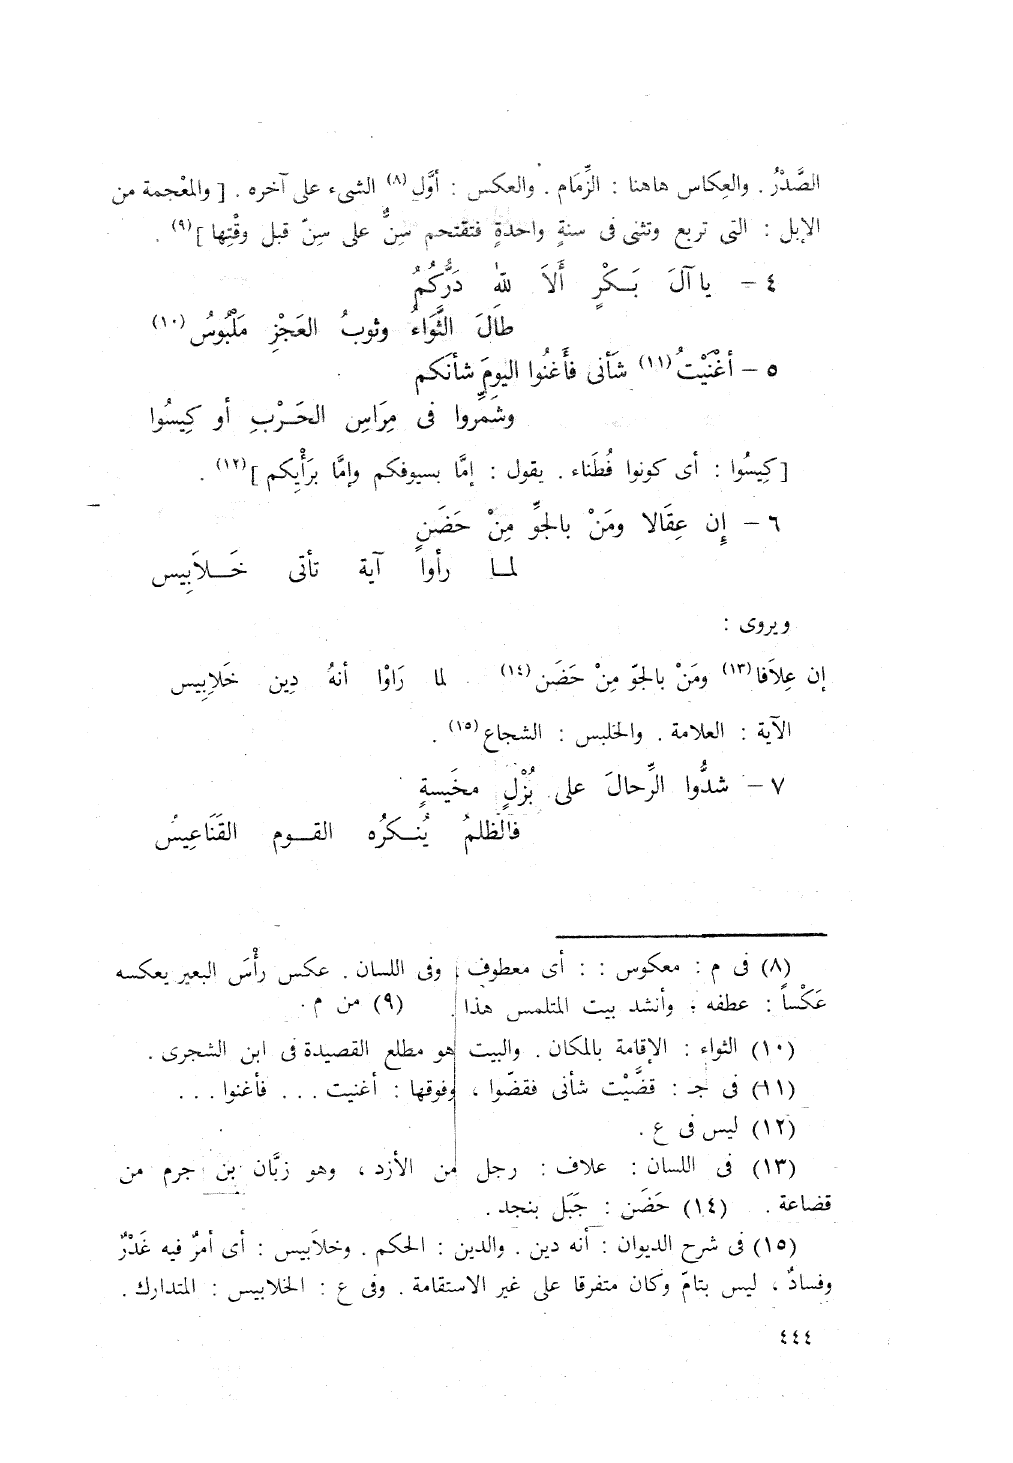 الصَّدْرُ . والعِكاس هاهنا : الزِّمَام . والعكس : أوَّل (٨) الشىء على آخره . [ والمعْجمة من
الإبل : التى تربع وتثنى فى سنةٍ واحدةٍ فتقتحم سِنٌّ على سِنّ قبل وقْتِها ] (٩) .
٤ – يا آلَ بَـكْرٍ أَلاَ للهِ دَرُّكُمُ
طالَ الثَّوَاءُ وثوبُ العَجْزِ مَلْبُوسُ (١٠)
٥ – أغْنَيْتُ (١١) شَأنى فأَغنُوا اليومَ شأنَكم
وشمِّروا فى مِرَاسِ الحَـرْبِ أو كِيسُوا
[ كِيسُوا : أى كونوا فُطَناء . يقول : إمَّا بسيوفكم وإمَّا برَأْيِكم ] (١٢) .
٦ – إِن عِقَالا ومَنْ بالجوِّ مِنْ حَضَنٍ
لمـا رأوا آية تأتى خَـلاَبِيس
ويروى :
إن عِلاَفا (١٣) ومَنْ بالجوّ مِنْ حَضَن (١٤) لما رَاوْا أنهُ دِين خَلابِيس
الآية : العلامة . والخلبس : الشجاع (١٥) .
٧ – شدُّوا الرِّحالَ على بُزْلٍ مخَيسةٍ
فالظلمُ يُنـكرُه القـوم القَنَاعِيسُ
(٨) فى م : معكوس : : أى معطوف . وفى اللسان . عكس رأْسَ البعير يعكسه
عَكْساً : عطفه . وأنشد بيت المتلمس هذا . (٩) من م .
(١٠) الثواء : الإقامة بالمكان . والبيت هو مطلع القصيدة فى ابن الشجرى .
(١١) فى جـ : قضَّيْت شأنى فقضّوا ، وفوقها : أغنيت . . . فأغنوا . . .
(١٢) ليس فى ع .
(١٣) فى اللسان : علاف : رجل من الأزد ، وهو زبَّان بن جرم من
قضاعة . (١٤) حَضَن : جَبَل بنجد .
(١٥) فى شرح الديوان : أنه دين . والدين : الحكم . وخلابيس : أى أمرٌ فيه غَدْرٌ
وفسادٌ ، ليس بتامّ وكان متفرقا على غير الاستقامة . وفى ع : الخلابيس : المتدارك .
٤٤٤